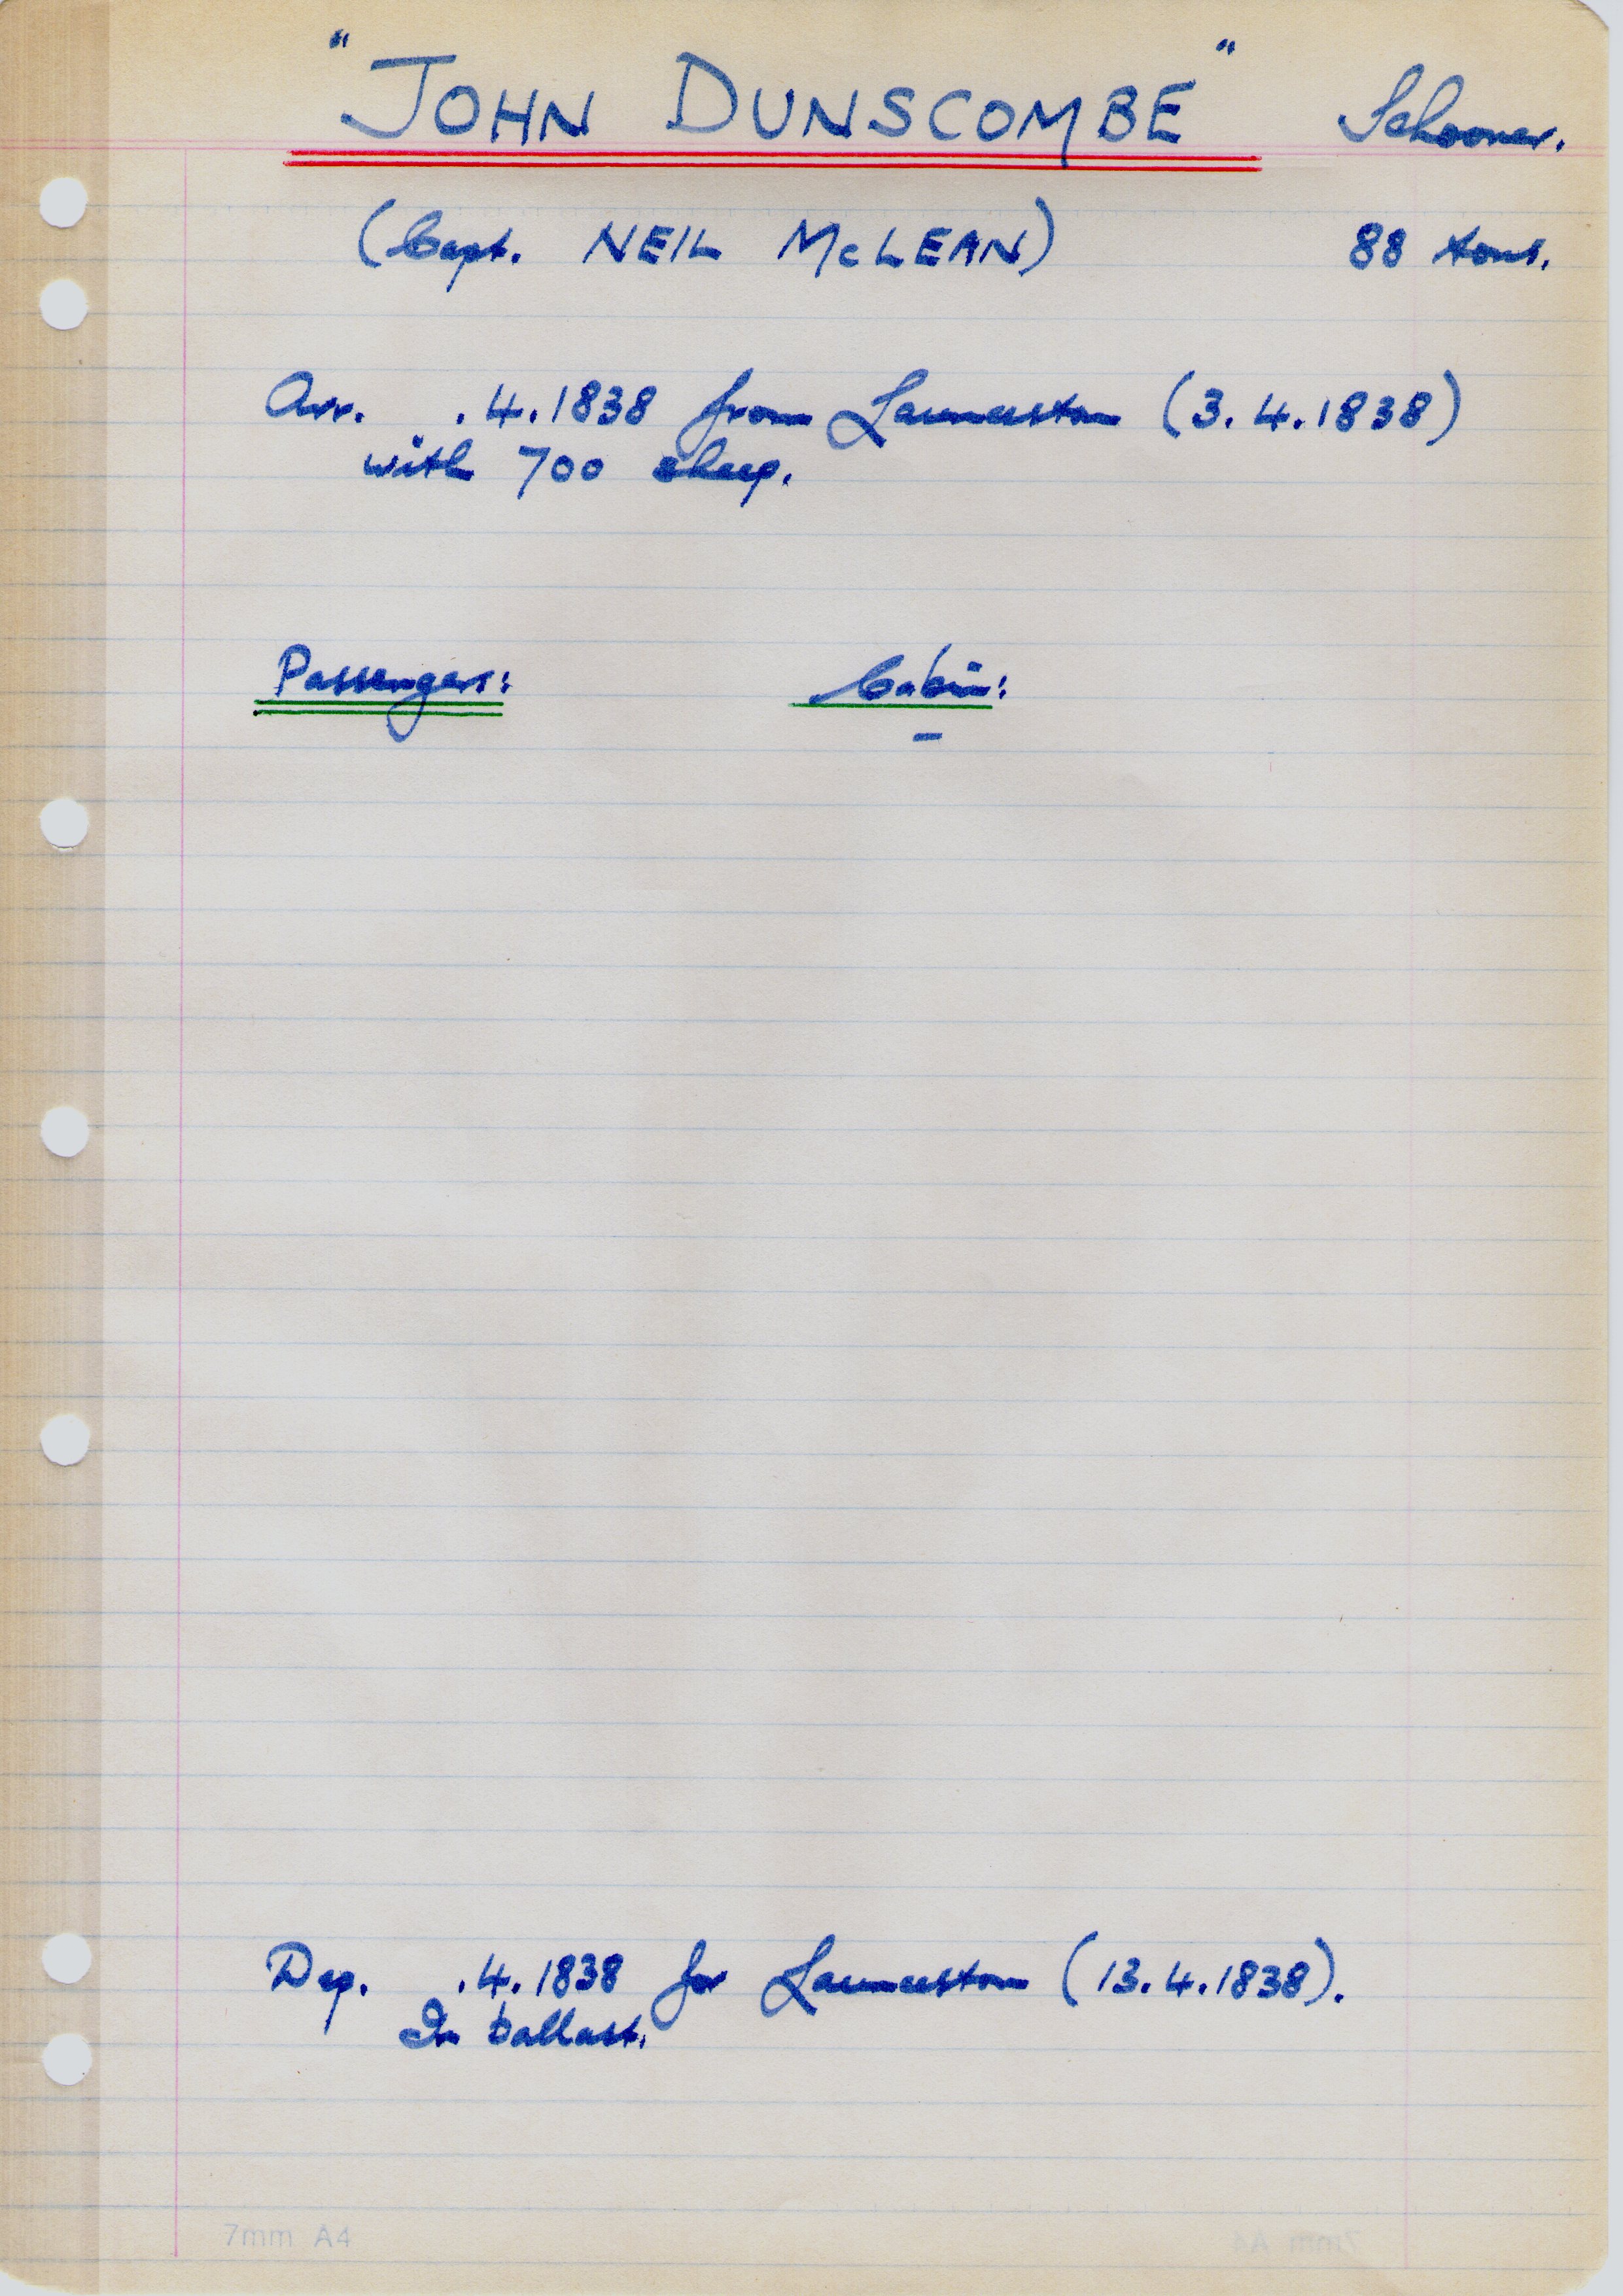 "JOHN DUNSCOMBE" Schooner.
(Capt. NEIL McLEAN) 88 tons.
Arr. .4.1838 from Launceston (3.4.1838)
with 700 sheep.
Passengers: Cabin:
–
Dep. .4.1838 for Launceston (13.4.1838).
In ballast.
7mm A4